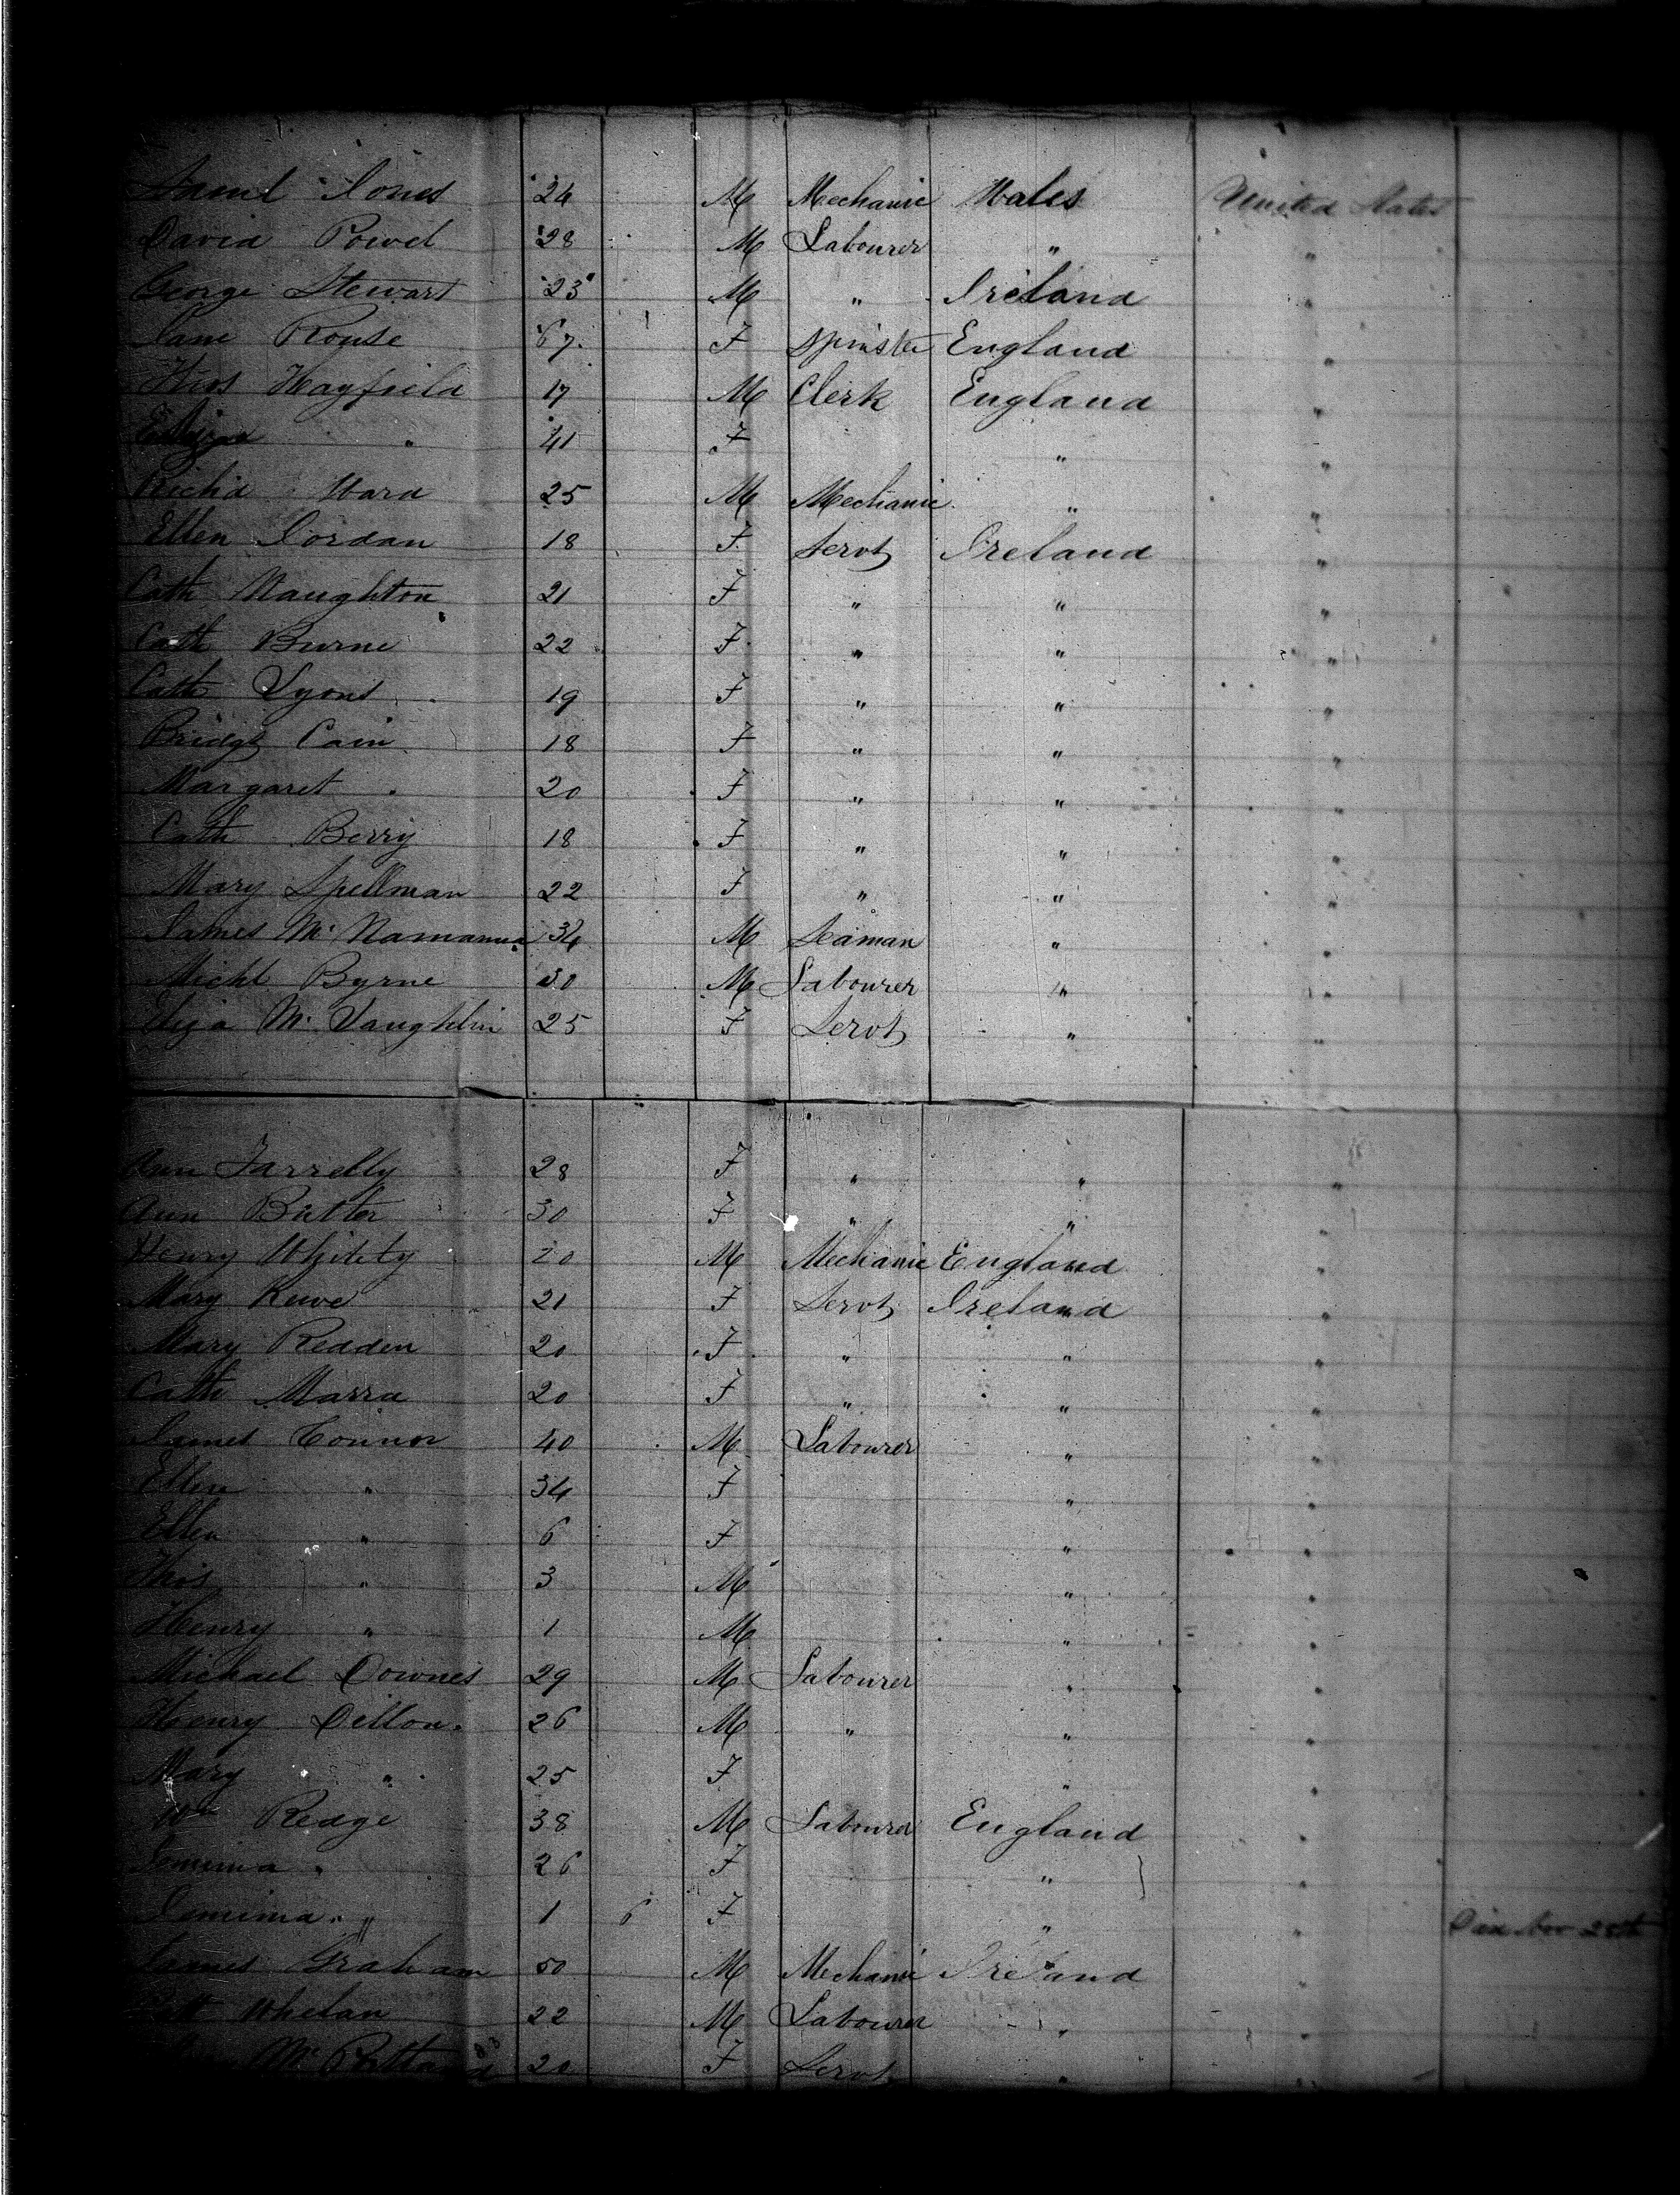 Saml Jones 24 M Mechanic Wales United States
David Powel 28 M Labourer " "
George Stewart 23 M " Ireland "
Jane Rouse 67 F Spinster England "
Thos Hayfield 17 M Clerk England "
" 41 F " "
Richd Ward 25 M Mechanic " "
Ellen Jordan 18 F Servt Ireland "
Cath Naughton 21 F " " "
Cath Burne 22 F " " "
Cath Lyons 19 F " " "
Bridgt Cain 18 F " " "
Margaret " 20 F " " "
Cath Berry 18 F " " "
Mary Spellman 22 F " " "
James McNamanua 34 M Seaman " "
Michl Byrne 30 M Labourer " "
Eliza McLaughlin 25 F Servt " "
Ann Farrelly 28 F " " "
Ann Butler 30 F " " "
Henry Whitely 20 M Mechanic England "
Mary 21 F Servt Ireland "
Mary Readen 20 F " " "
Cath Marra 20 F " " "
James Connor 40 M Labourer " "
Ellen " 34 F " "
Ellen " 6 F " "
Thos " 3 M " "
Henry " 1 M " "
Michael Downes 29 M Labourer " "
Henry Dillon 26 M " " "
Mary " 25 F " "
Wm Redge 38 M Labourer England "
Jemima " 26 F " "
Jemima " 1 6 F " " Died Nov 25th
James Graham 50 M Mechanic Ireland "
Whelan 22 M Labourer " "
20 F Servt " "